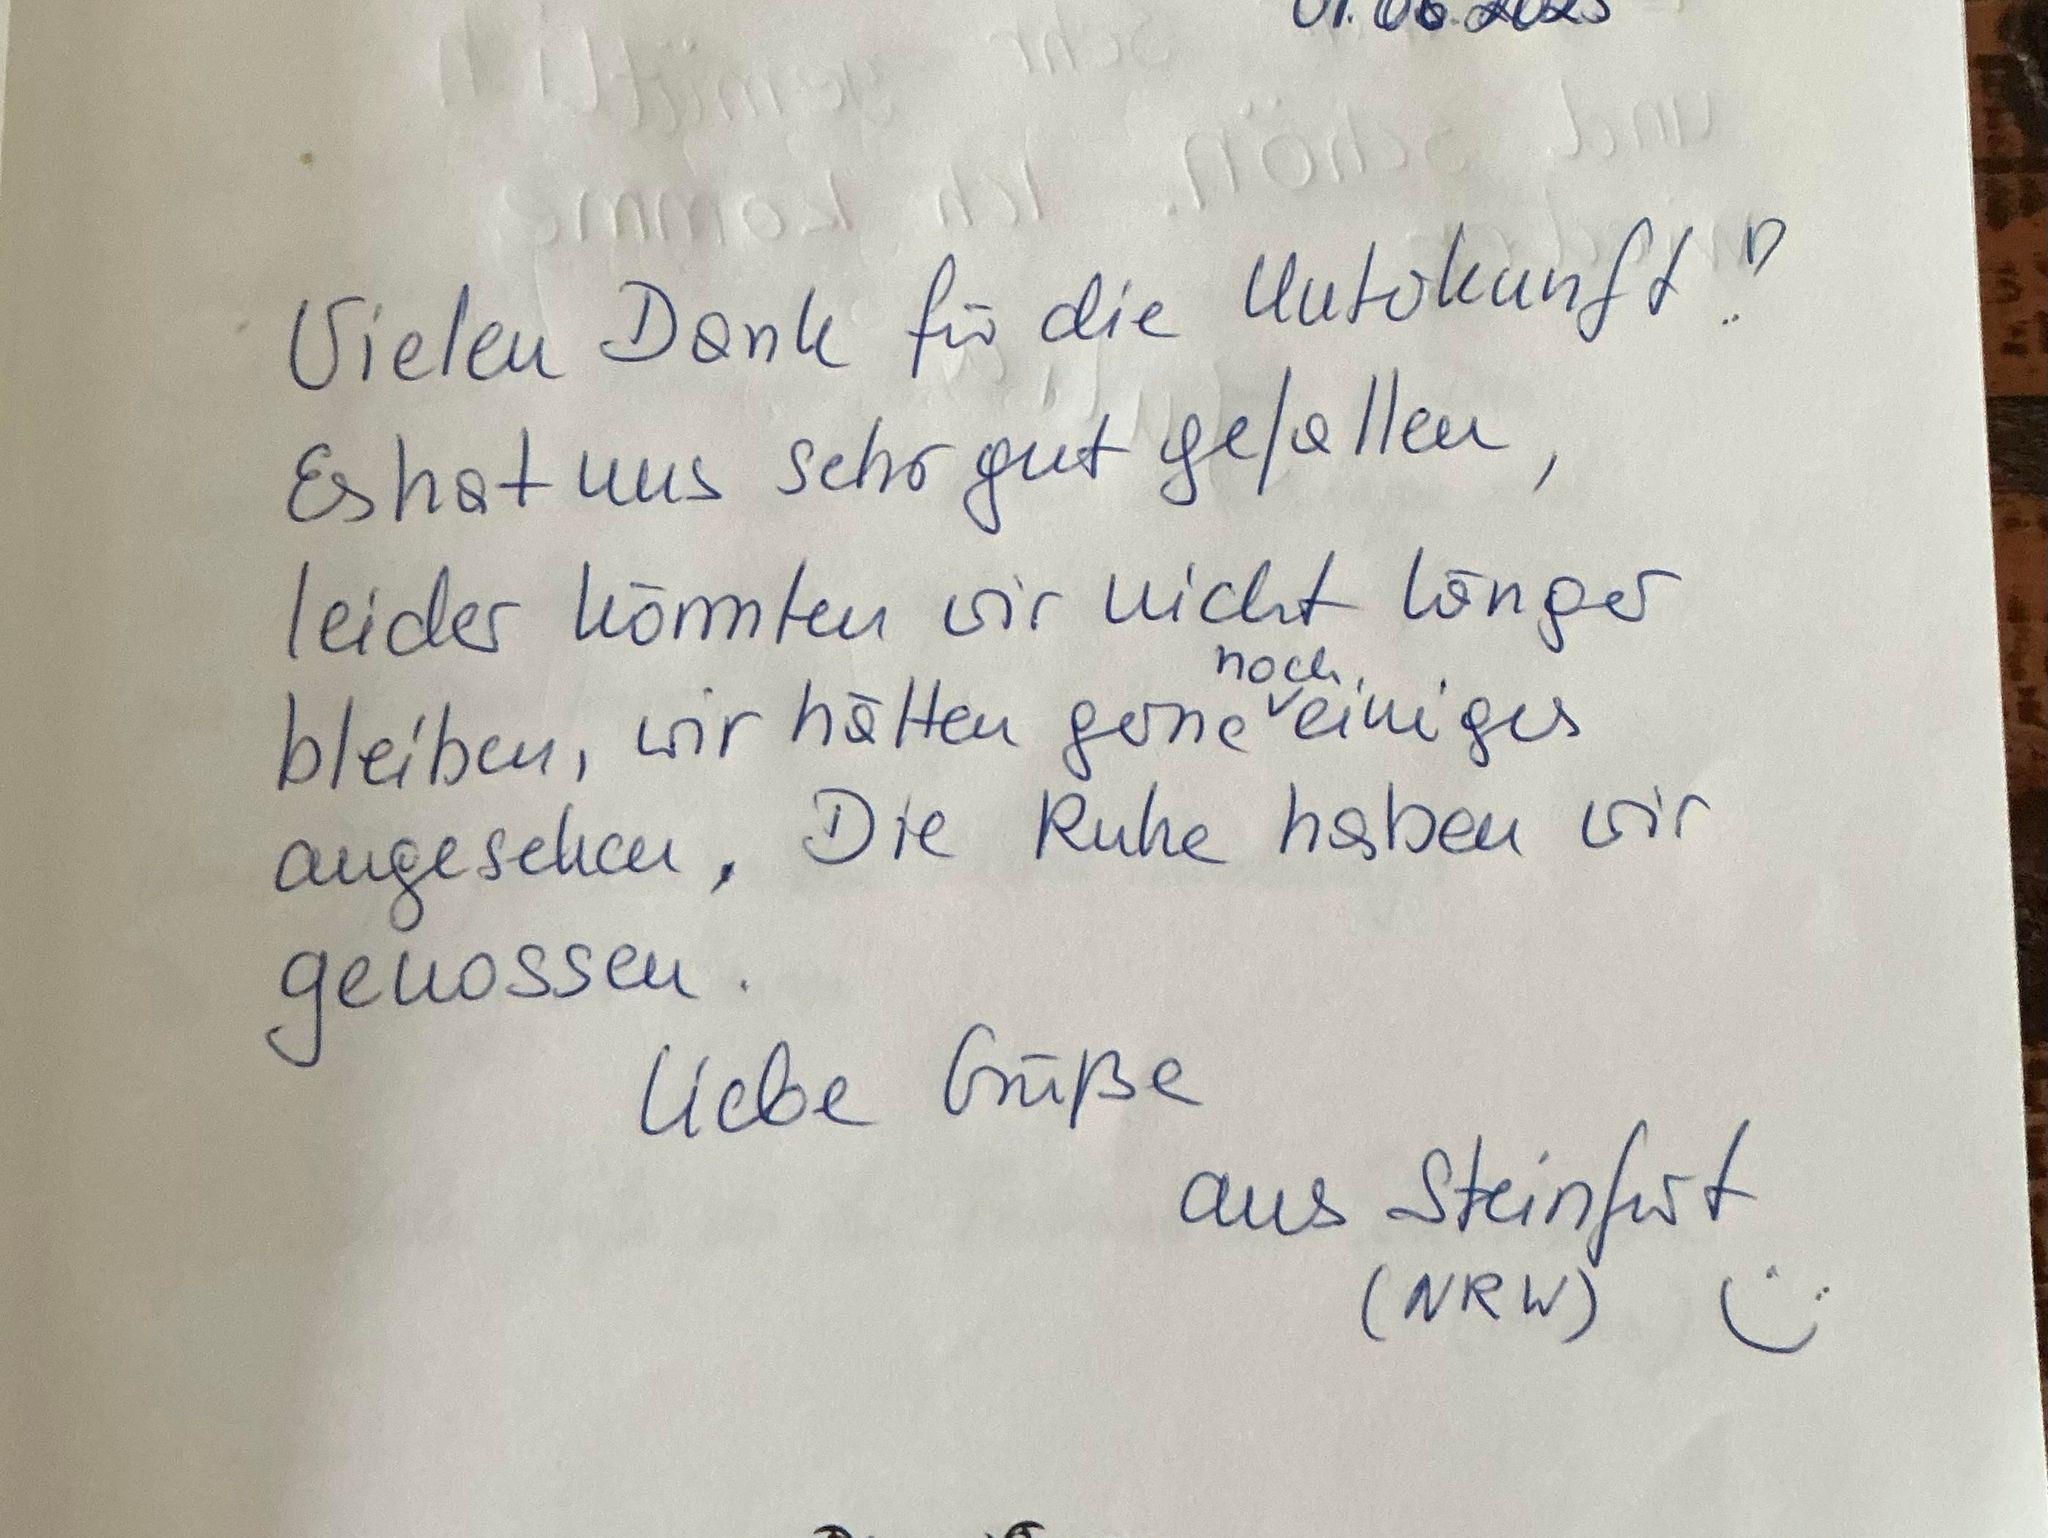 01.06.2025
Vielen Dank für die Unterkunft!
Es hat uns sehr gut gefallen,
leider könnten wir nicht länger
bleiben, wir hätten gerne noch einiges
angesehen. Die Ruhe haben wir
genossen.
Liebe Grüße
aus Steinfurt
(NRW)